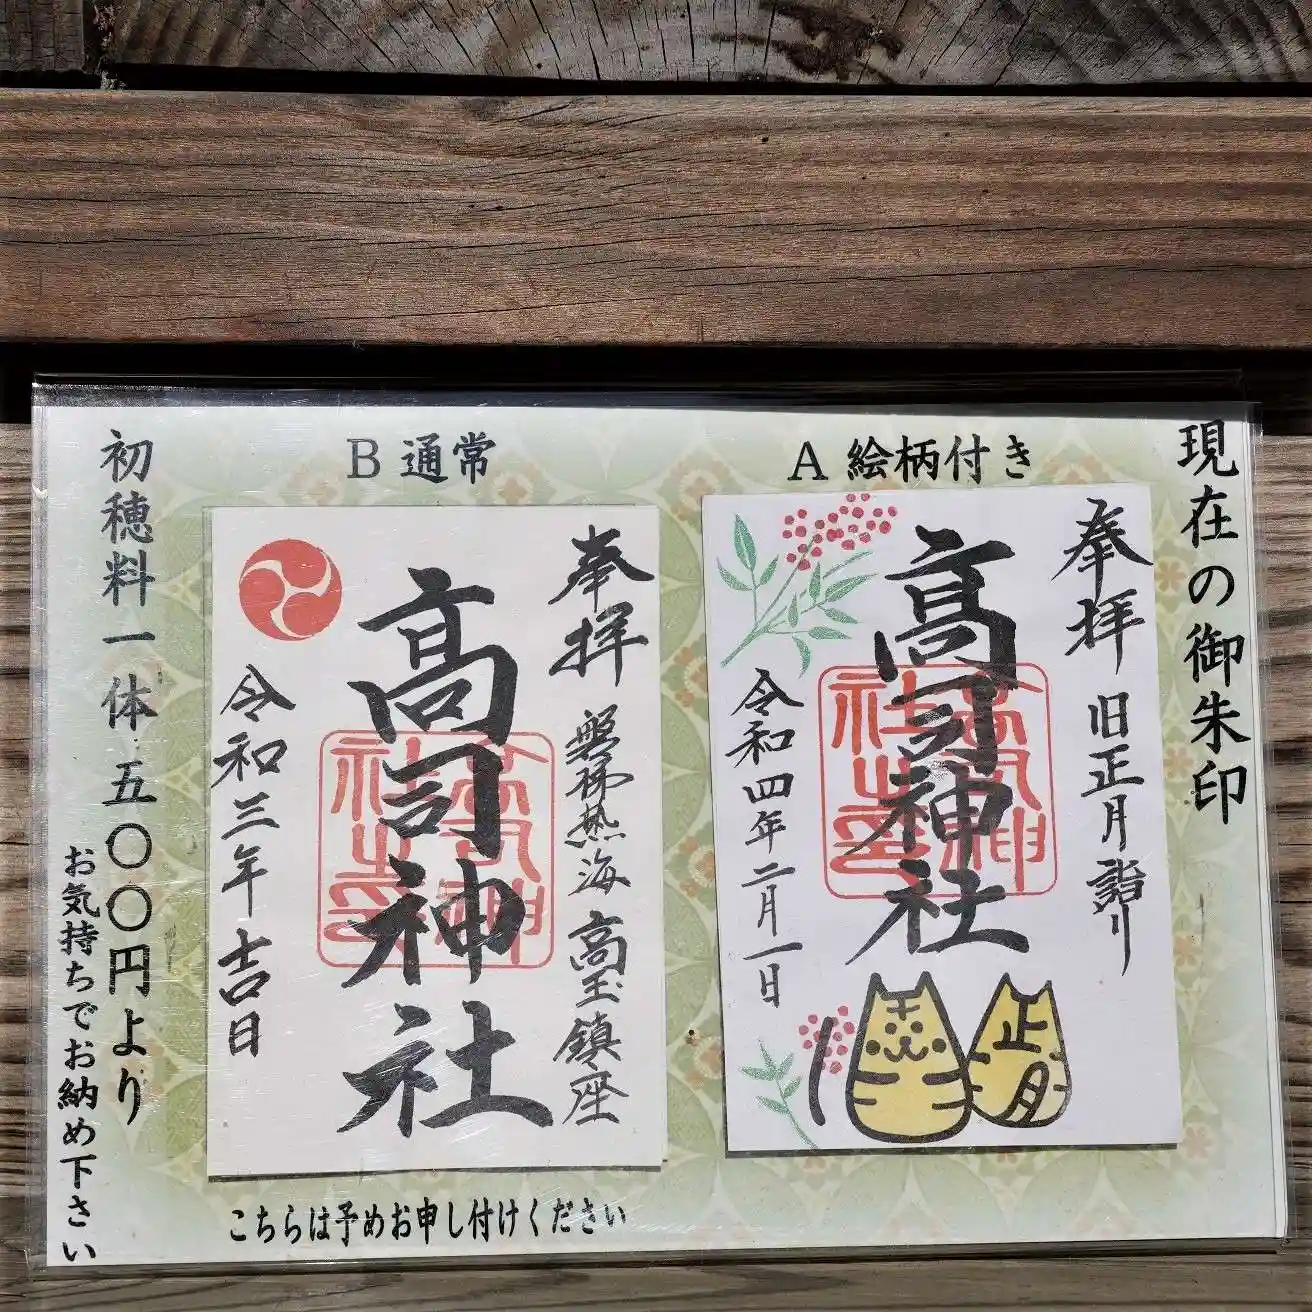 現在の御朱印
A 絵柄付き
奉拝 旧正月詣り
高司神社
令和四年二月一日
正月
B 通常
奉拝 磐梯熱海 高玉鎮座
高司神社
令和三年吉日
こちらは予めお申し付けください
初穂料一体 五〇〇円より
お気持ちでお納め下さい